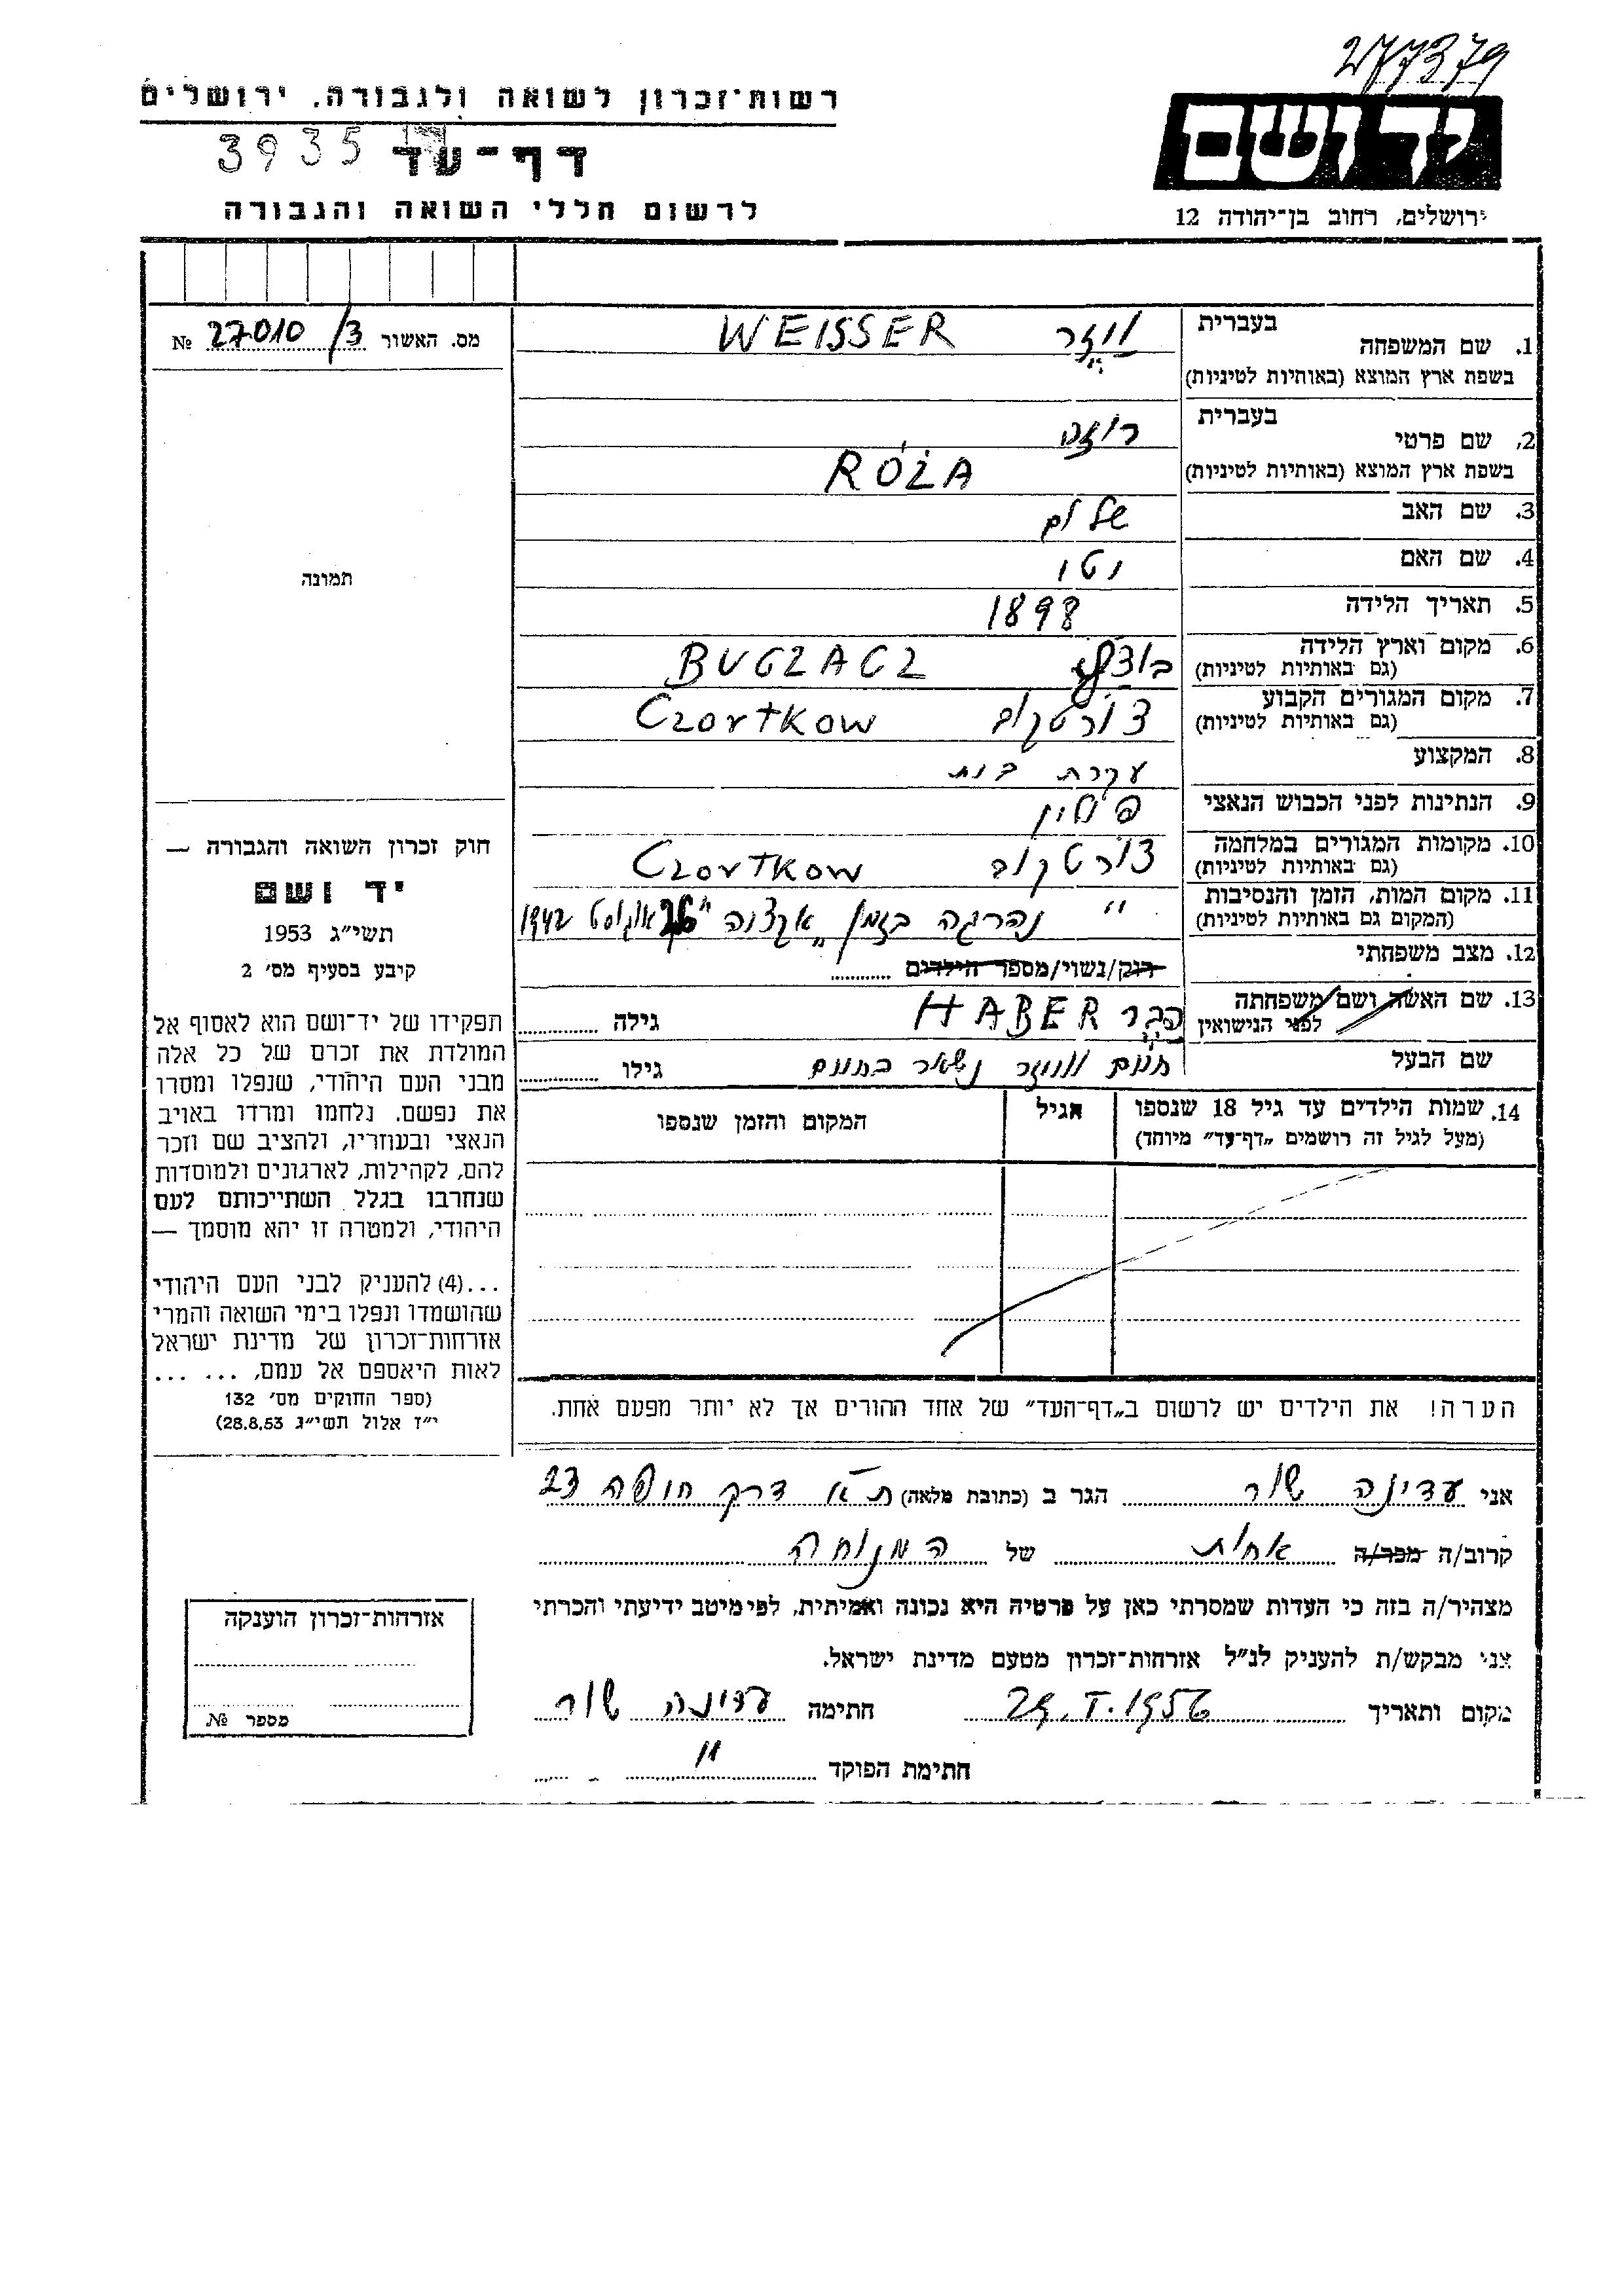 277379
יד ושם
ירושלים, רחוב בן־יהודה 12
רשות־זכרון לשואה ולגבורה, ירושלים
דף־עד 3935
לרשום חללי השואה והגבורה
מס. האשור 27010/3 №
תמונה
חוק זכרון השואה והגבורה —
יד ושם
תשי״ג 1953
קיבע בסעיף מס׳ 2
תפקידו של יד־ושם הוא לאסוף אל
המולדת את זכרם של כל אלה
מבני העם היהודי, שנפלו ומסרו
את נפשם, נלחמו ומרדו באויב
הנאצי ובעוזריו, ולהציב שם וזכר
להם, לקהילות, לארגונים ולמוסדות
שנחרבו בגלל השתייכותם לעם
היהודי, ולמטרה זו יהא מוסמך —
...(4) להעניק לבני העם היהודי
שהושמדו ונפלו בימי השואה והמרי
אזרחות־זכרון של מדינת ישראל
לאות היאספם אל עמם, ... ...
(ספר החוקים מס׳ 132
י״ז אלול תשי״ג 28.8.53)
בעברית
1. שם המשפחה
וייזר WEISSER
בשפת ארץ המוצא (באותיות לטיניות)
בעברית
2. שם פרטי
רוזה
בשפת ארץ המוצא (באותיות לטיניות)
RÓŻA
3. שם האב שלום
4. שם האם נטי
5. תאריך הלידה 1898
6. מקום וארץ הלידה BUCZACZ
(גם באותיות לטיניות)
7. מקום המגורים הקבוע צ'ורטקוב Czortkow
(גם באותיות לטיניות)
8. המקצוע עקרת בית
9. הנתינות לפני הכבוש הנאצי פולין
10. מקומות המגורים במלחמה צ'ורטקוב Czortkow
(גם באותיות לטיניות)
11. מקום המות, הזמן והנסיבות " נהרגה בזמן „אקציה" אוגוסט 1942
(המקום גם באותיות לטיניות)
12. מצב משפחתי
רוק/נשוי/מספר הילדים
13. שם האשה ושם משפחתה
לפני הנישואין הבר HABER גילה
שם הבעל חיים וייזר נשאר בחיים גילו
14. שמות הילדים עד גיל 18 שנספו הגיל המקום והזמן שנספו
(מעל לגיל זה רושמים „דף־עד" מיוחד)
הערה! את הילדים יש לרשום ב„דף־העד" של אחד ההורים אך לא יותר מפעם אחת.
אני עדינה שור הגר ב (כתובת מלאה) ת"א דרך חיפה 23
קרוב/ה מכר/ה אחות של המנוחה
מצהיר/ה בזה כי העדות שמסרתי כאן על פרטיה היא נכונה ואמיתית, לפי מיטב ידיעתי והכרתי
אני מבקש/ת להעניק לנ״ל אזרחות־זכרון מטעם מדינת ישראל.
מקום ותאריך 29.I.1956 חתימה עדינה שור
חתימת הפוקד "
אזרחות־זכרון הוענקה
מספר №